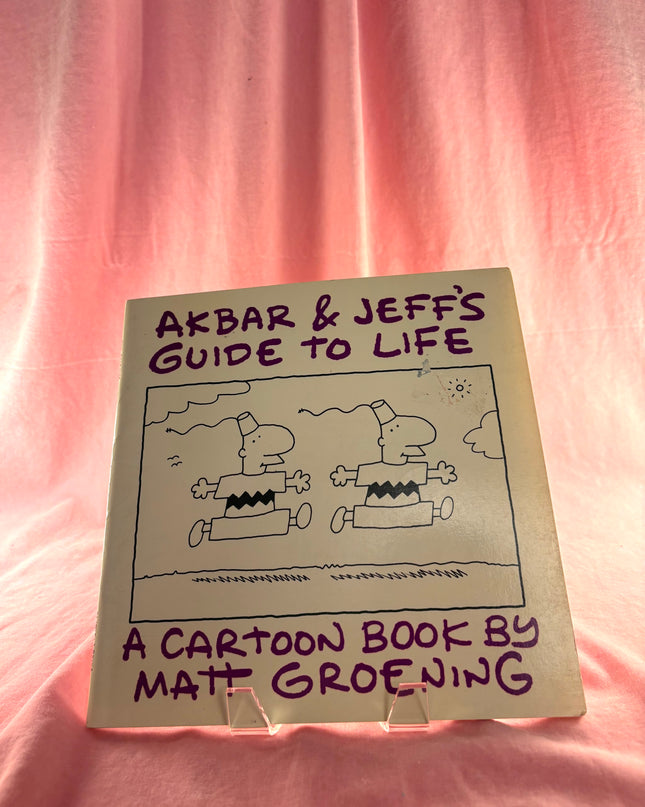 AKBAR & JEFF'S
GUIDE TO LIFE
A CARTOON BOOK BY
MATT GROENING